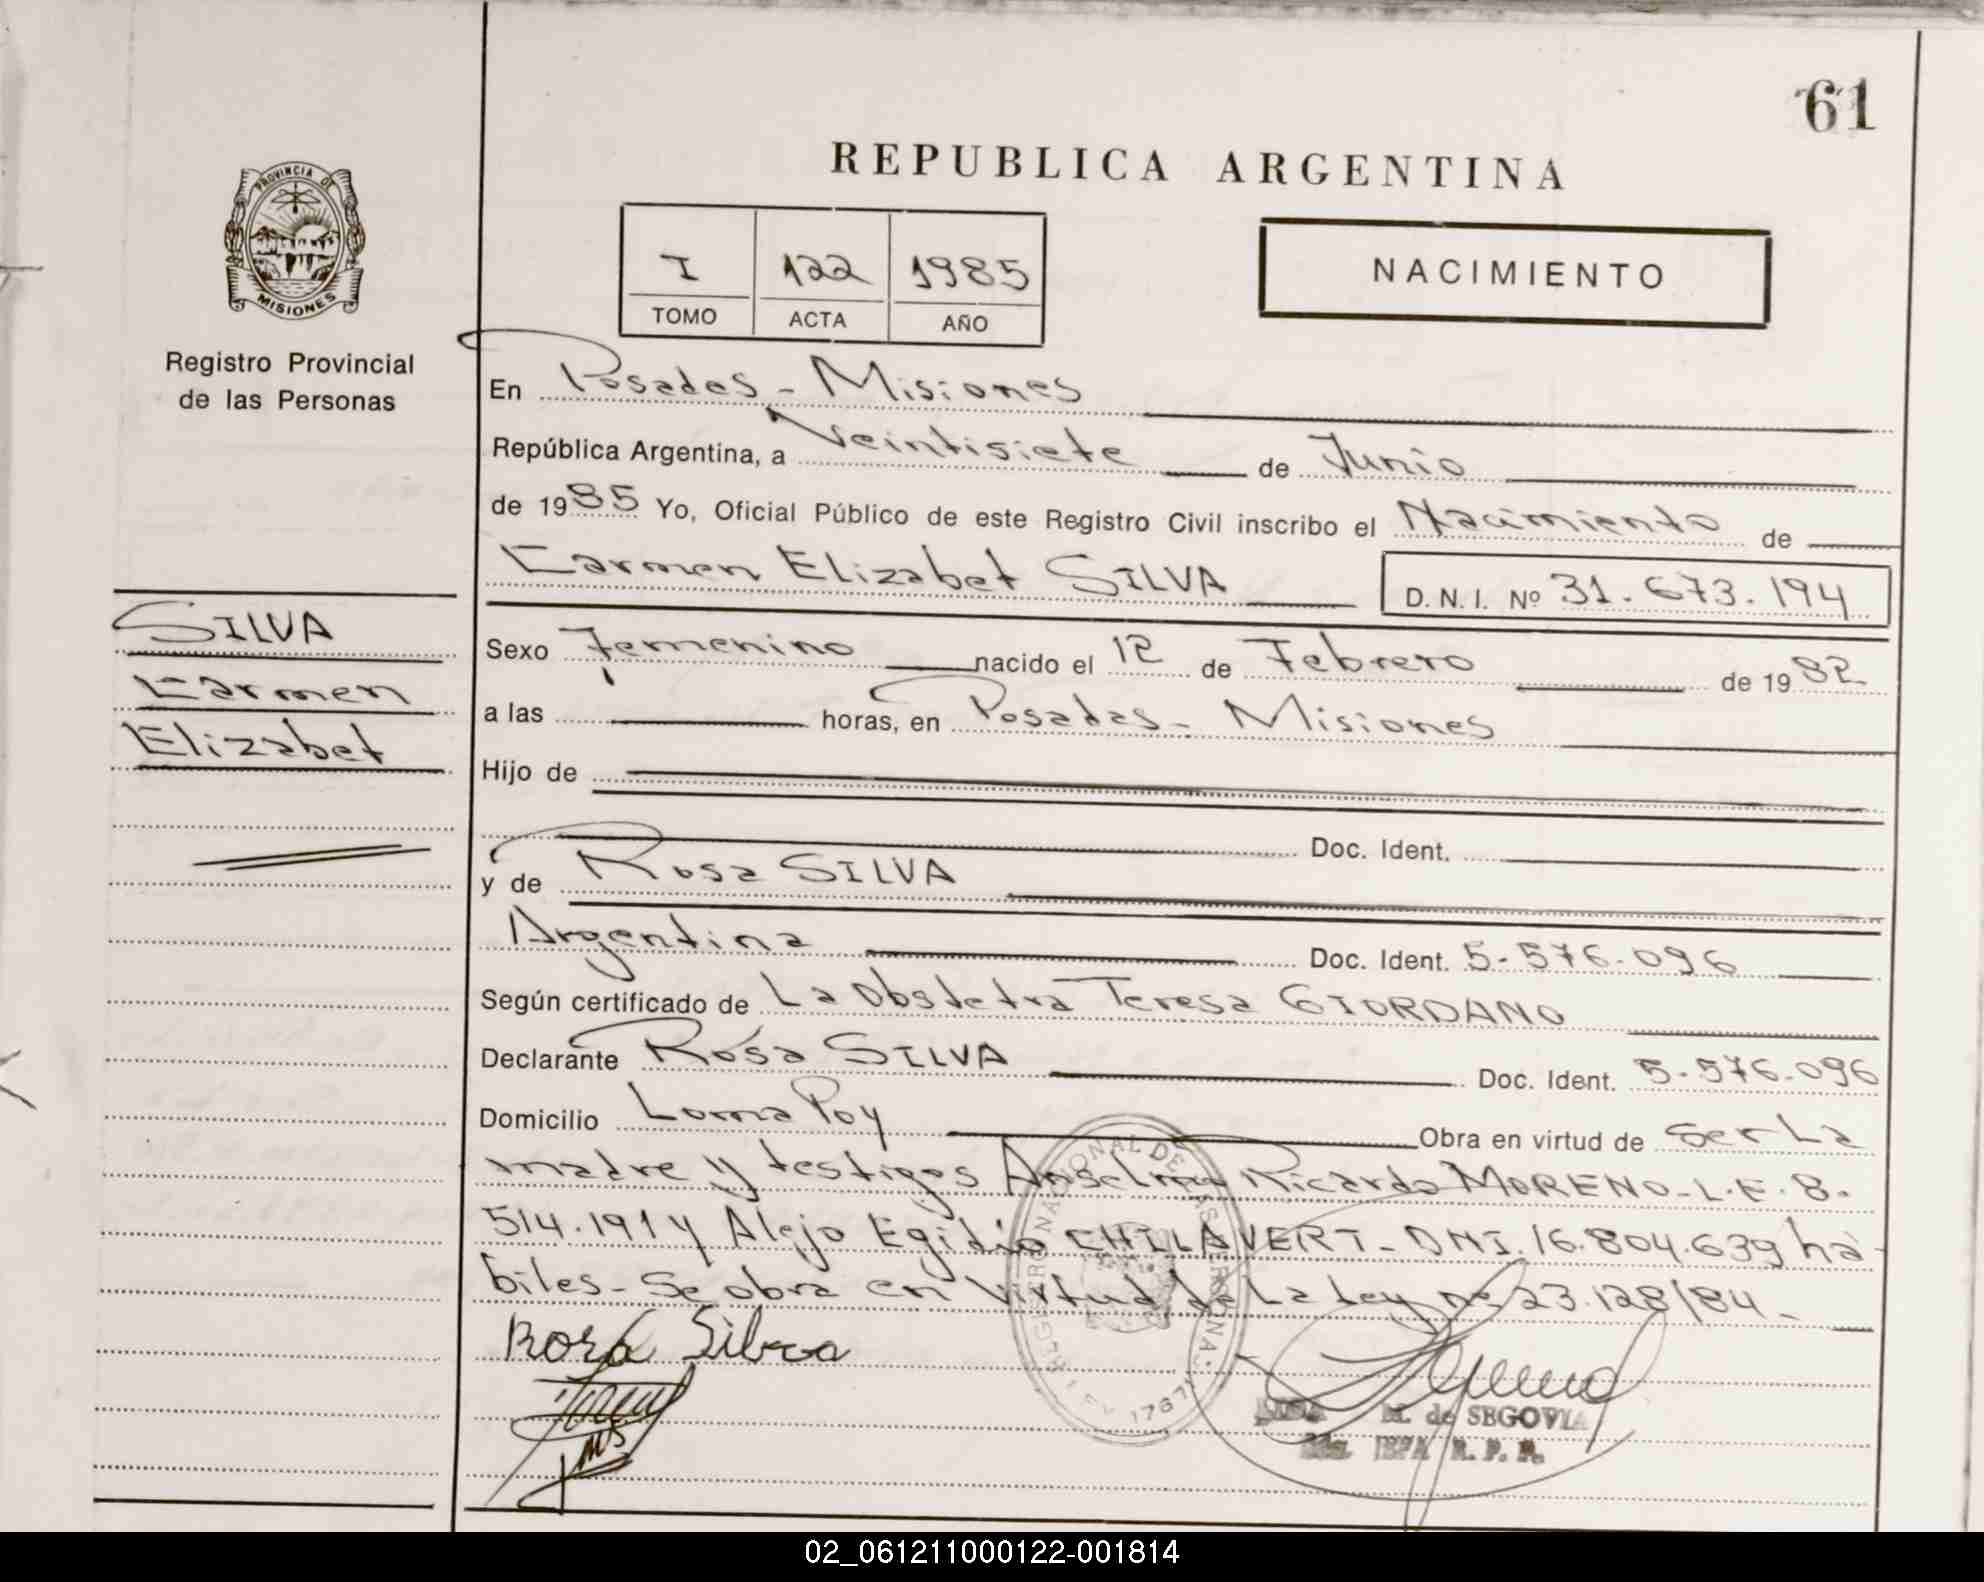 61
REPUBLICA ARGENTINA
PROVINCIA DE
MISIONES
Registro Provincial
de las Personas
I 122 1985
TOMO ACTA AÑO
NACIMIENTO
En Posadas - Misiones
República Argentina, a Veintisiete de Junio
de 1985 Yo, Oficial Público de este Registro Civil inscribo el Nacimiento de
Carmen Elizabet SILVA D.N.I. Nº 31.673.194
SILVA
Carmen
Elizabet
Sexo Femenino nacido el 12 de Febrero de 1982
a las horas, en Posadas - Misiones
Hijo de
Doc. Ident.
y de Rosa SILVA
Argentina Doc. Ident. 5-576.096
Según certificado de La Obstetra Teresa GIORDANO
Declarante Rosa SILVA Doc. Ident. 5-576.096
Domicilio Loma Poy Obra en virtud de Ser La
madre y testigos Anselmo Ricardo MORENO - L.E. 8.
514.191 y Alejo Egidio CHILAVERT - DNI. 16.804.639 há-
biles - Se obra en Virtud de La Ley nº 23.128/84 -
Rosa Silva
REGISTRO NACIONAL DE LAS PERSONAS
M. de SEGOVIA
R. P. P.
02_061211000122-001814